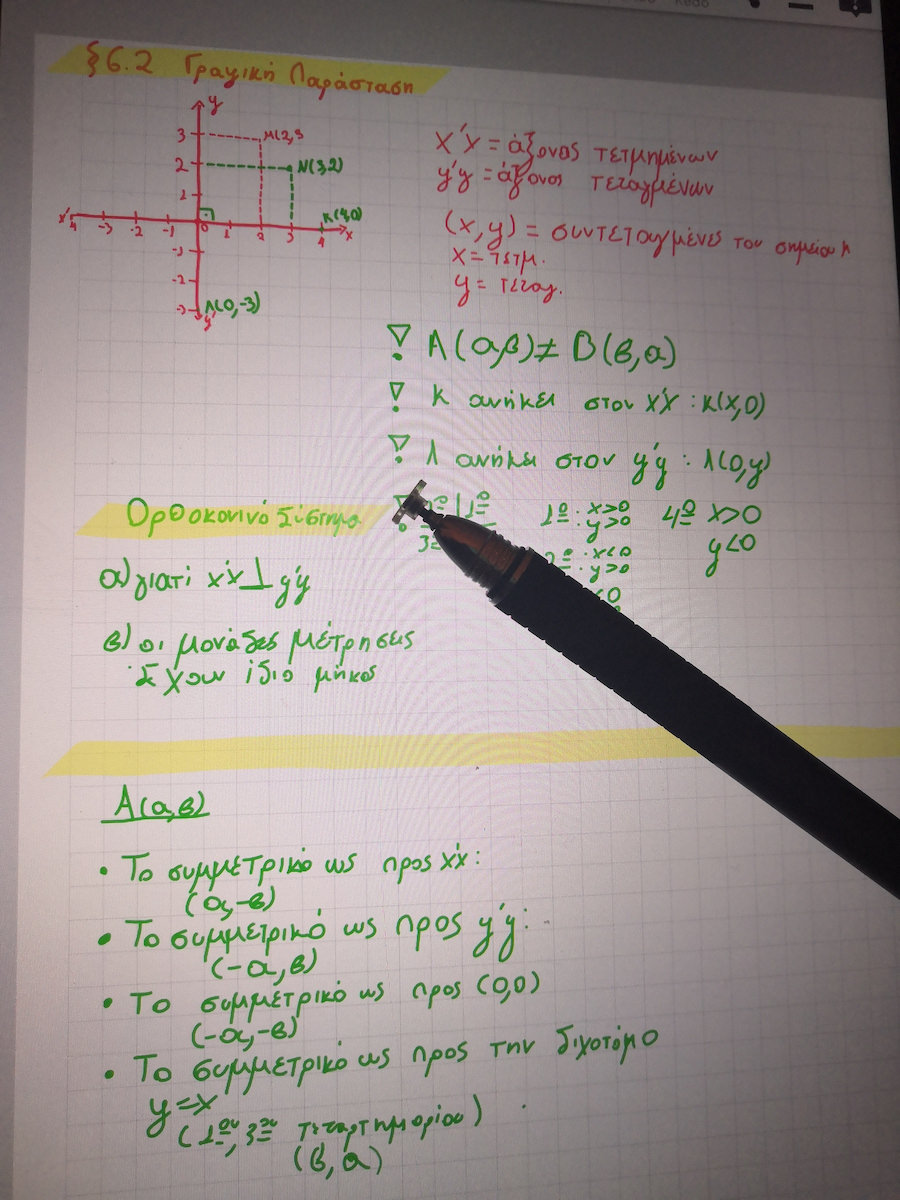 §6.2 Γραφική Παράσταση
y
3
M(2,3
2
N(3,2)
1
K(4,0)
x' -4 -3 -2 -1 0 1 2 3 4 x
-1
-2
-3 Λ(0,-3)
y'
x'x = άξονας τετμημένων
y'y = άξονας τεταγμένων
(x,y) = συντεταγμένες του σημείου
x = τετμ.
y = τεταγ.
! A(α,β) ≠ B(β,α)
! K ανήκει στον x'x : K(x,0)
! Λ ανήκει στον y'y : Λ(0,y)
! 1º
3º
1º : x>0
y>0
: x<0
y>0
<0
4º x>0
y<0
Ορθοκονινό Σύστημα
α) γιατί x'x ⊥ y'y
β) οι μονάδες μέτρησεις
έχουν ίδιο μήκος
A(α,β)
• Το συμμετρικό ως προς x'x:
(α,-β)
• Το συμμετρικό ως προς y'y:
(-α,β)
• Το συμμετρικό ως προς (0,0)
(-α,-β)
• Το συμμετρικό ως προς την διχοτόμο
y=x
(1ου, 3ου τεταρτημορίου)
(β,α)